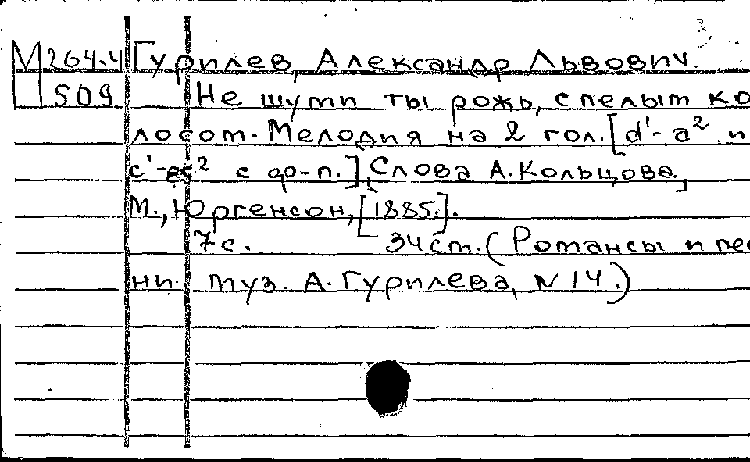 М 264.4 Гурилев, Александр Львович.
509 Не шуми ты рожь, спелым ко
лосом. Мелодия на 2 гол. [d'-a² и
c'-es² с ф-п.], [Слова А. Кольцова.]
М., Юргенсон, [1885.].
7 с. 34 см. (Романсы и пес
ни. муз. А. Гурилева, N 14.)